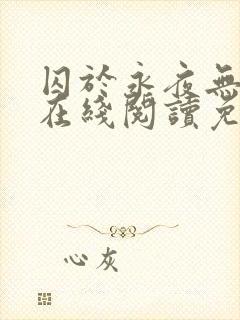 囚於永夜無
在綫閱讀免
心灰